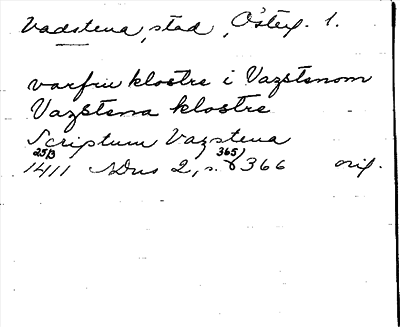 Vadstena, stad, Österg. 1.
varfru klostre i Vazstenom
Vazstena klostre
Scriptum Vazstena
25/3 365)
1411 SDns 2, s. 366 orig.